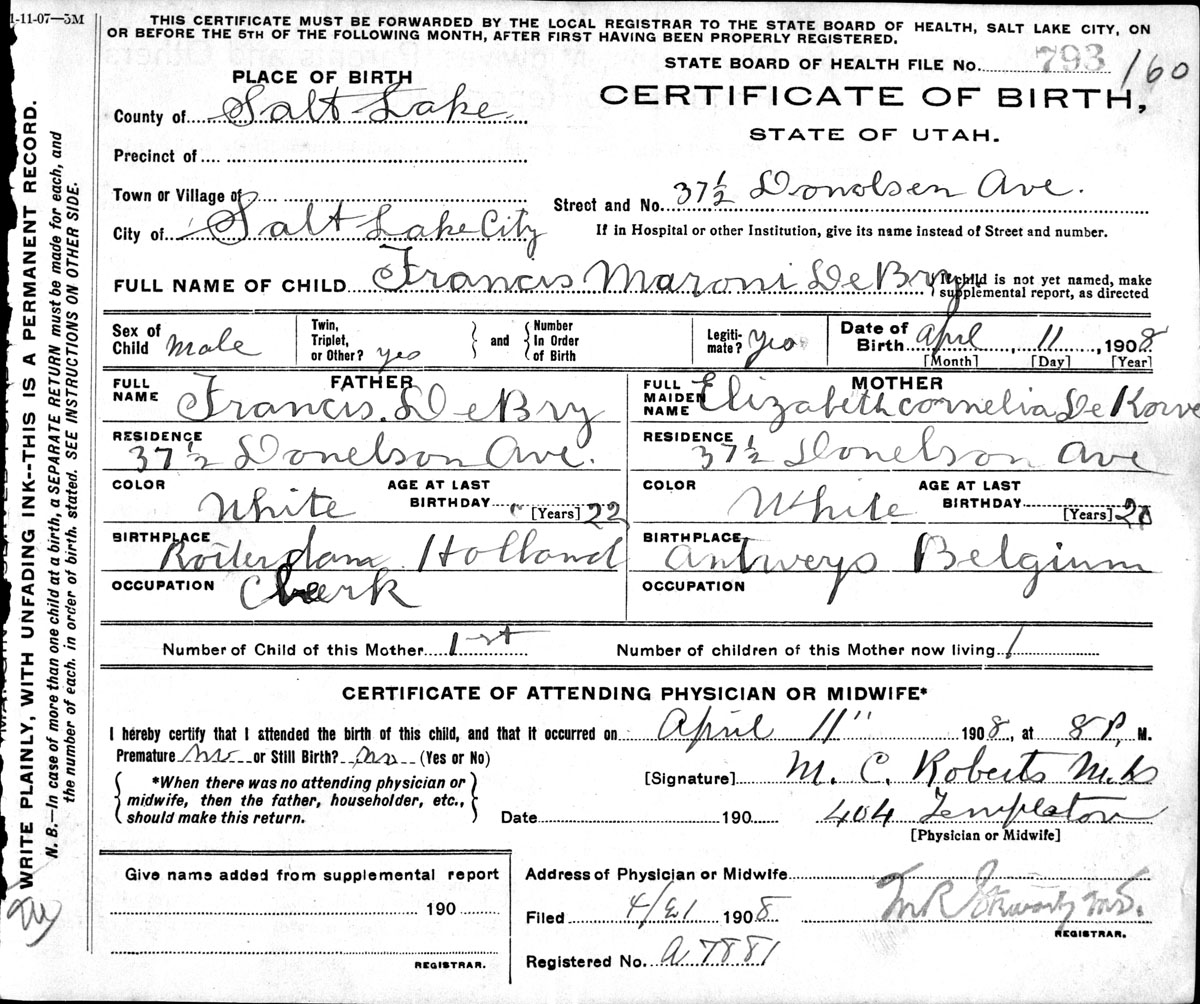 1-11-07—5M
THIS CERTIFICATE MUST BE FORWARDED BY THE LOCAL REGISTRAR TO THE STATE BOARD OF HEALTH, SALT LAKE CITY, ON
OR BEFORE THE 5TH OF THE FOLLOWING MONTH, AFTER FIRST HAVING BEEN PROPERLY REGISTERED.
STATE BOARD OF HEALTH FILE No. 793 160
PLACE OF BIRTH
CERTIFICATE OF BIRTH,
STATE OF UTAH.
County of Salt Lake
Precinct of
Town or Village of
Street and No. 37½ Donolsen Ave.
City of Salt Lake City
If in Hospital or other Institution, give its name instead of Street and number.
FULL NAME OF CHILD Francis Maroni DeBry { If child is not yet named, make
supplemental report, as directed
Sex of Child Male
Twin, Triplet, or Other? yes
} and { Number In Order of Birth
Legiti-mate? Yes
Date of Birth April, 11, 1908
[Month] [Day] [Year]
FATHER
FULL NAME Francis. DeBry
RESIDENCE 37½ Donelson Ave.
COLOR White AGE AT LAST BIRTHDAY 22 [Years]
BIRTHPLACE Rotterdam Holland
OCCUPATION Clerk
MOTHER
FULL MAIDEN NAME Elizabeth Cornelia De
RESIDENCE 37½ Donelson Ave
COLOR White AGE AT LAST BIRTHDAY [Years]
BIRTHPLACE Antweys Belgium
OCCUPATION
Number of Child of this Mother 1st Number of children of this Mother now living 1
CERTIFICATE OF ATTENDING PHYSICIAN OR MIDWIFE*
I hereby certify that I attended the birth of this child, and that it occurred on April 11" 1908, at 8 P, M.
Premature No or Still Birth? No (Yes or No)
{ *When there was no attending physician or
midwife, then the father, householder, etc.,
should make this return. }
[Signature] M. C. Roberts
Date 190 404 Templeton
[Physician or Midwife]
Give name added from supplemental report
190
REGISTRAR.
Address of Physician or Midwife
Filed 4/21 1908
REGISTRAR.
Registered No. A7881
WRITE PLAINLY, WITH UNFADING INK--THIS IS A PERMANENT RECORD.
N. B.—In case of more than one child at a birth, a SEPARATE RETURN must be made for each, and
the number of each, in order of birth, stated. SEE INSTRUCTIONS ON OTHER SIDE.